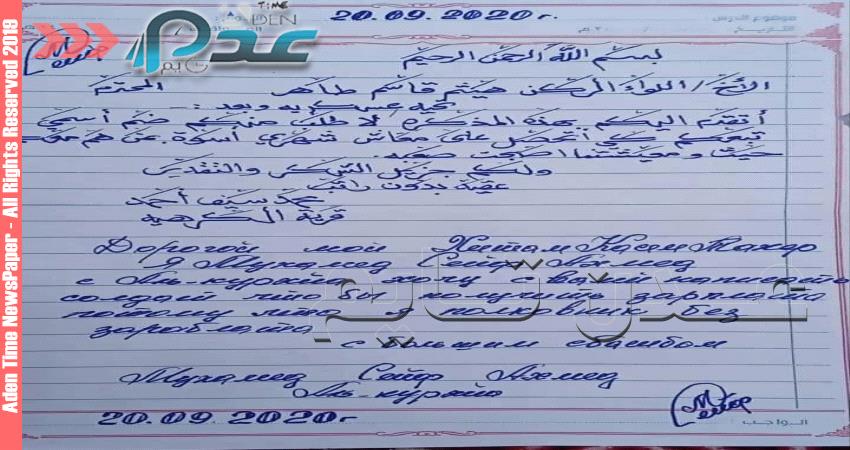 Aden Time NewsPaper - All Rights Reserved 2018
TIME
ADEN
عدن
تايم
موضوع الدرس
التاريخ
20.09.2020г.
بسم الله الرحمن الرحيم
الأخ/ اللواء الركن هيثم قاسم طاهر المحترم
تحية عسكرية وبعد:
أتقدم اليكم بهذه المذكرة لا طلب منكم ضم أسمي
كي أتحصل على معاش شهري أسوة عن هم
حيث ومعيشتنا اصبحت صعبه.
ولكم جزيل الشكر والتقدير
عقيد بدون راتب
محمد سيف أحمد
قرية الكرهيه
Дорогой мой Хитам Касем Тахер
Я Мухамед Сейф Ахмед
с Аль-курайа хочу с вами написать
солдат что бы получить зарплата
потому что я полковник без
зароблата
с большим
Мухамед Сейф Ахмед
Аль-курайа
20.09.2020г
عدن تايم
الواجب: